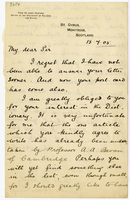 ST. CYRUS,
MONTROSE,
SCOTLAND
My dear Sir
I regret that I have not
been able to answer your letter
sooner. And now your post card
has come also.
I am greatly obliged to you
for your interest in the Dict-
ionary. It is very unfortunate
for me that the one article
which you kindly agree to
write has already been under
taken by Professor
of Cambridge Perhaps you
will yet find something else
in the list, even though small
for I should greatly like to have